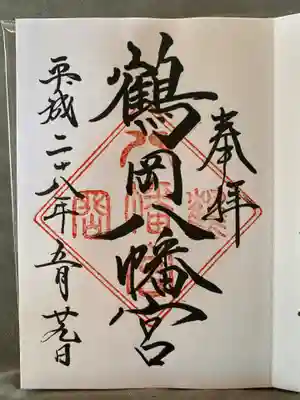 奉拝
鶴岡八幡宮
平成二十八年五月廿九日